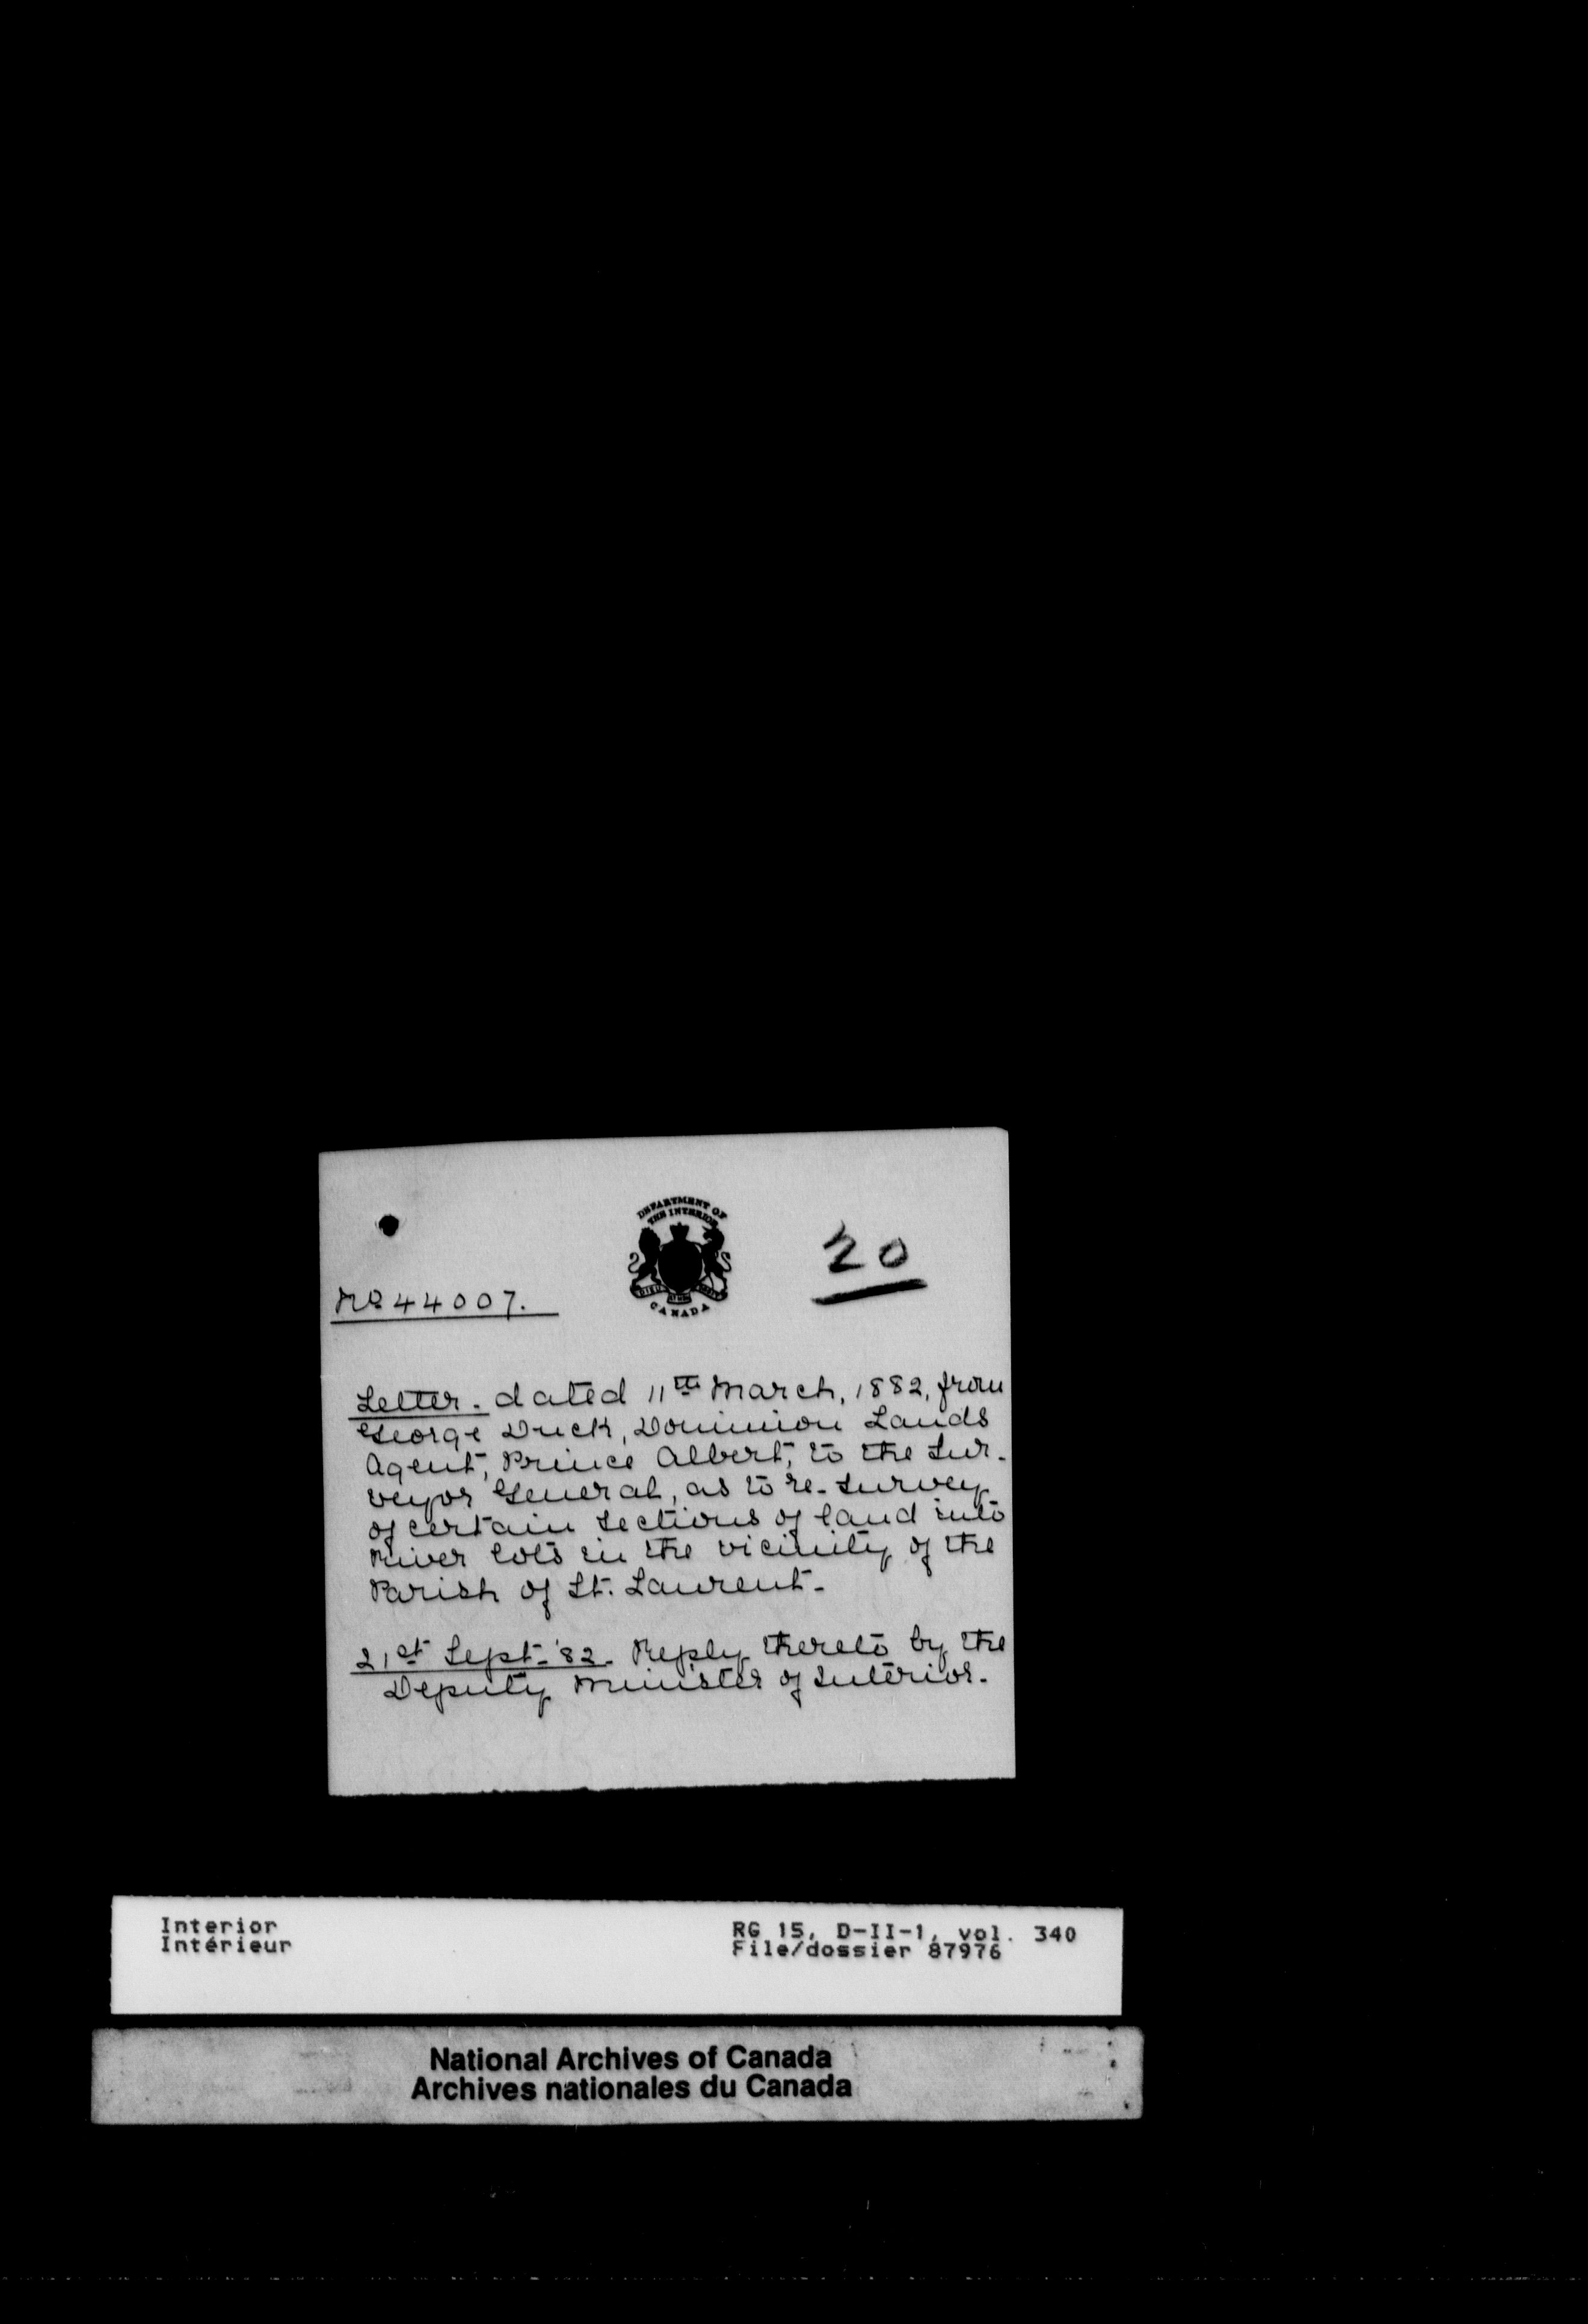 DEPARTMENT OF
THE INTERIOR
CANADA
20
No 44007.
Letter. dated 11th March, 1882, from
George Duck, Dominion Lands
Agent, Prince Albert, to the Sur-
veyor General, as to re-survey
of certain sections of land into
River lots in the vicinity of the
Parish of St. Laurent.
21st Sept. '82. Reply thereto by the
Deputy Minister of Interior.
Interior
Intérieur
RG 15, D-II-1, vol. 340
File/dossier 87976
National Archives of Canada
Archives nationales du Canada